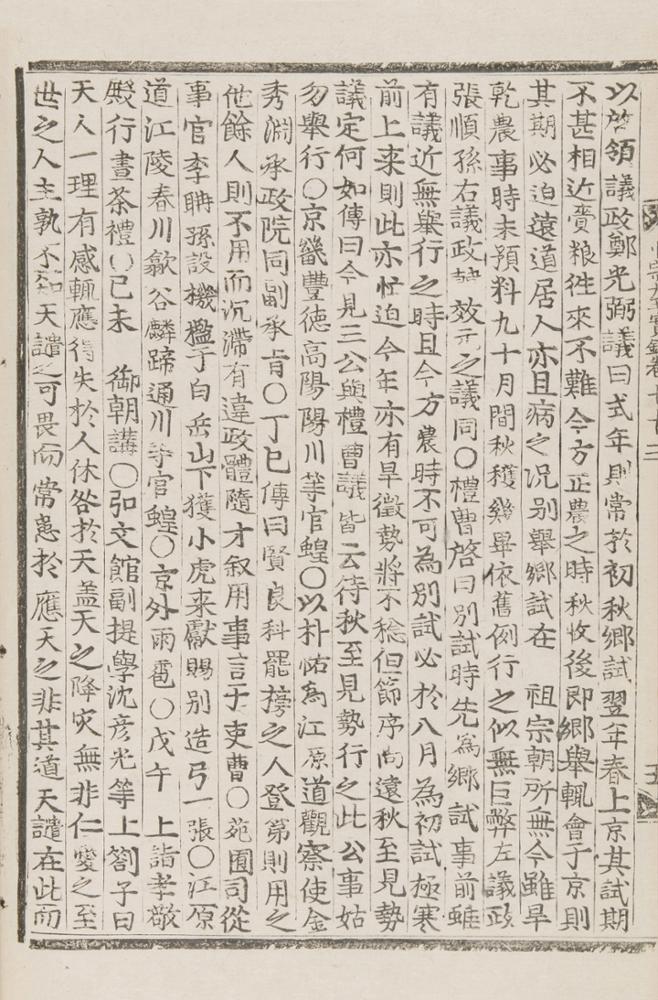 以啓領議政鄭光弼議曰式年則常於初秋鄕試翌年春上京其試期
不甚相近賫粮徃來不難今方正農之時秋收後卽鄕擧輒會于京則
其期必迫遠道居人亦且病之况別擧鄕試在　祖宗朝所無今雖旱
乾農事時未預料九十月間秋穫幾畢依舊例行之似無巨弊左議政
張順孫右議政韓效元之議同○禮曹啓曰別試時先爲鄕試事前雖
有議近無擧行之時且今方農時不可爲別試必於八月爲初試極寒
前上來則此亦忙迫今年亦有旱徵勢將不稔但節序尙遠秋至見勢
議定何如傳曰今見三公與禮曹議皆云待秋至見勢行之此公事姑
勿擧行○京畿豐德高陽陽川等官蝗○以朴佑爲江原道觀察使金
秀淵承政院同副承旨○丁巳傳曰賢良科罷榜之人登第則用之
他餘人則不用而沉滯有違政體隨才叙用事言于吏曹○苑囿司從
事官李聃孫設機檻于白岳山下獲小虎來獻賜別造弓一張○江原
道江陵春川歙谷麟蹄通川等官蝗○京外雨雹○戊午　上詣孝敬
殿行晝茶禮○己未　御朝講○弘文館副提學沈彦光等上劄子曰
天人一理有感輒應得失於人休咎於天盖天之降灾無非仁愛之至
世之人主孰不知天譴之可畏而常患於應天之非其道天譴在此而